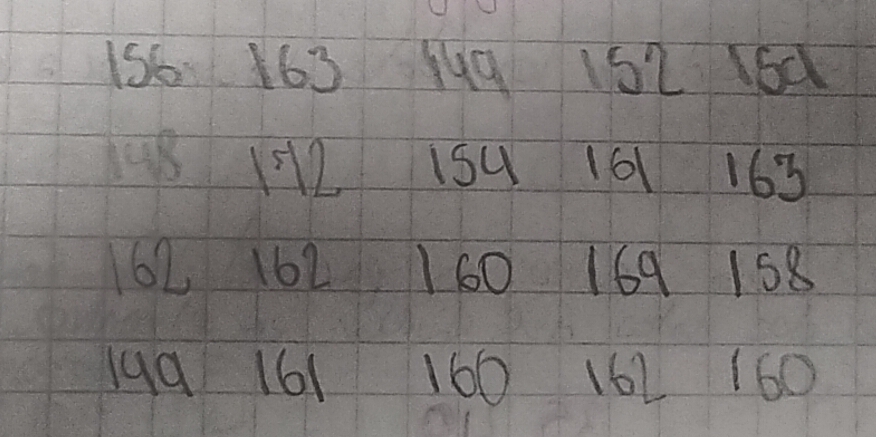 156 163 149 152 159
148 172 154 161 163
162 162 160 169 158
149 161 160 162 160